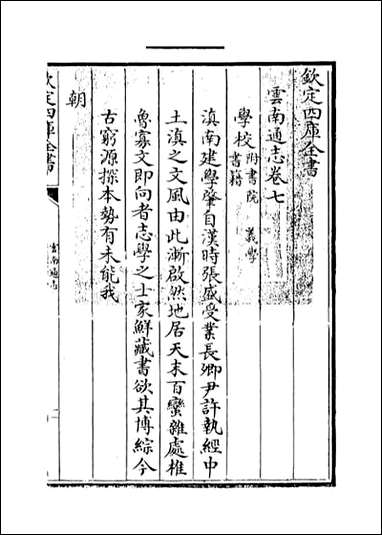 欽定四庫全書
雲南通志卷七
學校附書院 義學
書籍
滇南建學肇自漢時張盛受業長卿尹許執經中
土滇之文風由此漸啟然地居天末百蠻雜處椎
魯寡文即向者志學之士家鮮藏書欲其博綜今
古窮源探本勢有未能我
朝
欽定四庫全書
雲南通志